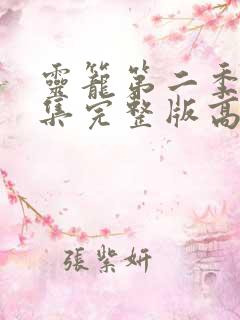 靈籠第二季
集完整版高
張紫妍